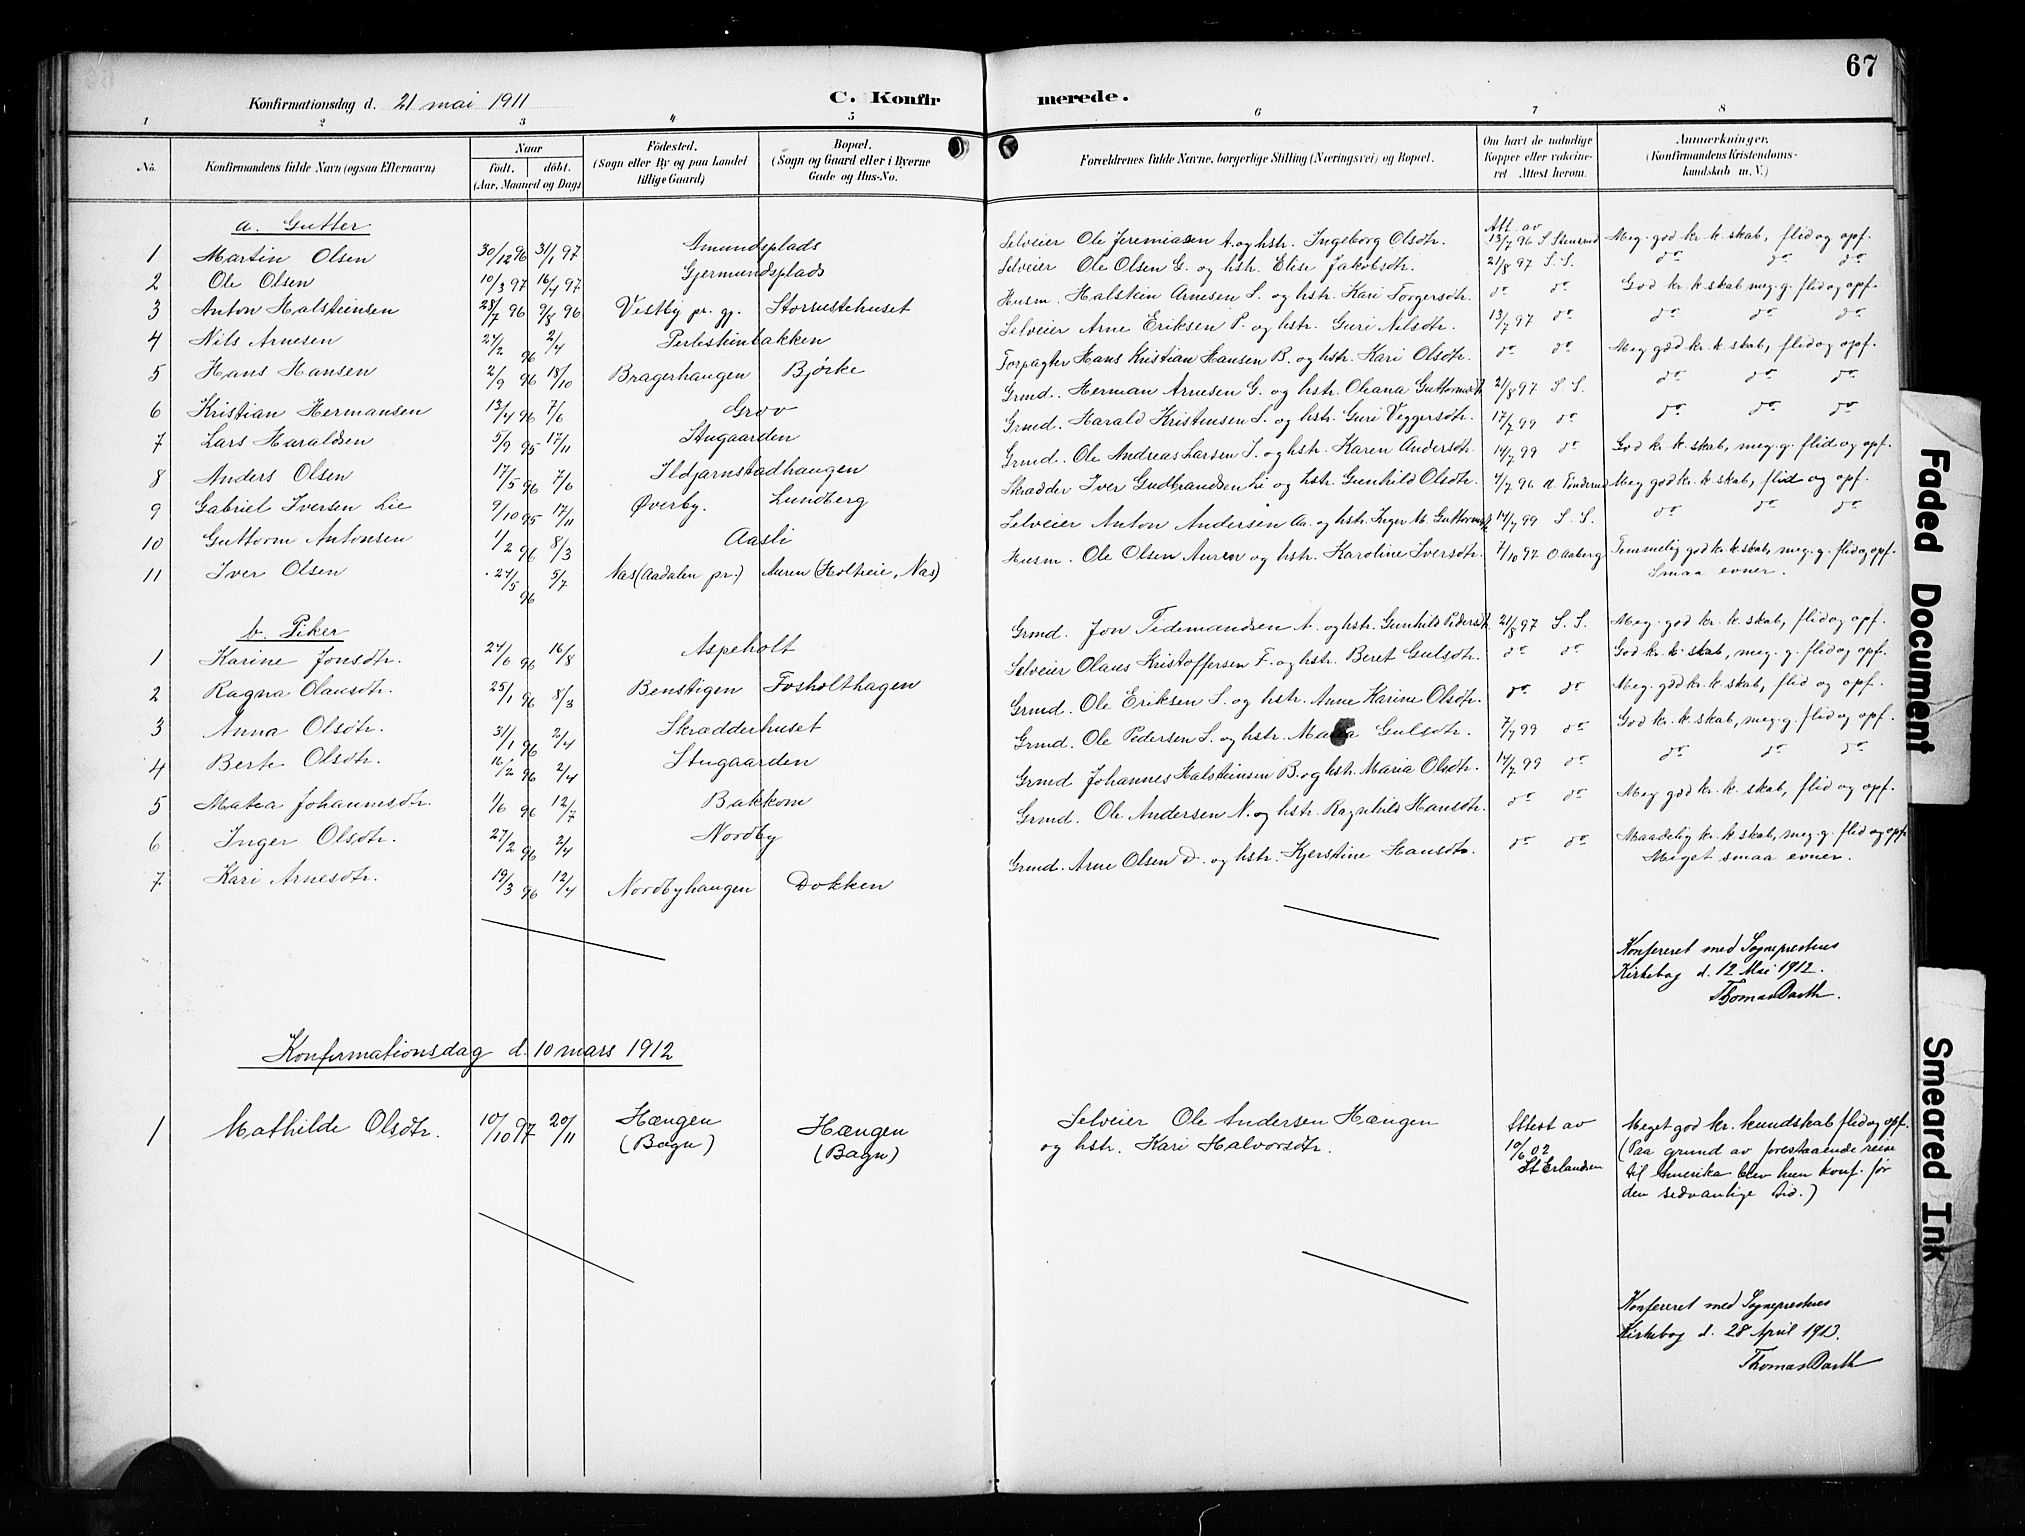 67
Konfirmationsdag d. 21 mai 1911 C. Konfirmerede.
1 2 3 4 5 6 7 8
No. Konfirmandens fulde Navn (ogsaa Efternavn) Naar født. døbt. (Aar, Maaned og Dag) Fødested. (Sogn eller By og paa Landet tillige Gaard) Bopæl. (Sogn og Gaard eller i Byerne Gade og Hus-No. Forældrenes fulde Navne, borgerlige Stilling (Næringsvei) og Bopæl. Om havt de naturlige Kopper eller vakcineret Attest herom. Anmærkninger. (Konfirmandens Kristendomskundskab m. V.)
a. Gutter
1 Martin Olsen 30/12 96 31/1 97 Amundsplads Selveier Ole Jeremiasen A. og hstr. Ingeborg Olsdtr. Att. av 13/7 96 S. Stensrud Meg. god kr. k. skab, flid og opf.
2 Ole Olsen 10/3 97 16/4 97 Gjermundsplads Selveier Ole Olsen G. og hstr. Elise Jakobsdtr. 21/8 97 S. S. do do do
3 Anton Halsteinsen 28/7 96 9/8 96 Vestby pr. gj. Storrustehuset Husm. Halstein Arnesen S. og hstr. Kari Torgersdtr. do do God kr. k. skab meg. g. flid og opf.
4 Nils Arnesen 24/2 96 2/4 Perlesteinbakken Selveier Arne Eriksen P. og hstr. Guri Nilsdtr. 13/7 97 do do do do
5 Hans Hansen 2/9 96 18/10 Bragerhaugen Bjørke Forpagter Hans Kristian Hansen B. og hstr. Kari Olsdtr. do do Meg god kr. k. skab, flid og opf.
6 Kristian Hermansen 13/4 96 7/6 Grov Grmd. Herman Arnesen G. og hstr. Oliana Guttormsdtr 21/8 97 S. S. do do do
7 Lars Haraldsen 5/9 95 17/11 Stugaarden Grmd. Harald Kristensen S. og hstr. Guri Veggersdtr. 17/7 99 do do do do
8 Anders Olsen 17/5 96 7/6 Ildjarnstadhaugen Grmd. Ole Andreas Larsen I. og hstr. Karen Andersdtr. 14/7 99 do God kr. k. skab, meg. g. flid og opf.
9 Gabriel Iversen Lie 9/10 95 17/11 Øverby. Lundberg Skrædder Iver Gudbrandsen Li og hstr. Gunhild Olsdtr. 4/7 96 Meg god kr. k. skab, flid og opf.
10 Guttorm Antonsen 1/2 96 8/3 Aasli Selveier Anton Andersen Aa. og hstr. Inger M. Guttormsdtr 14/7 99 S. S. do do do
11 Iver Olsen 24/5 96 5/7 Nas (Aadalen pr.) Auren (Holteie, Nas) Husm. Ole Olsen Auren og hstr. Karoline Iversdtr. 7/10 97 O Aaberg Temmelig god kr. k. skab, meg. g. flid og opf.
Smaa evner.
b. Piker
1 Karine Jonsdtr. 24/6 96 16/8 Aspeholt Grmd. Jon Tidemandsen A. og hstr. Gunhild Pedersdtr. 21/8 97 S. S. Meg. god kr. k. skab, flid og opf.
2 Ragna Olausdtr. 25/1 96 8/3 Benstigen Fosholthagen Selveier Olaus Kristoffersen F. og hstr. Beret Gulsdtr. do do God kr. k. skab, meg. g. flid og opf.
3 Anna Olsdtr. 31/1 96 2/4 Skrædderhuset Grmd. Ole Eriksen S. og hstr. Anne Karine Olsdtr. do do Meg. god kr. k. skab, flid og opf.
4 Berte Olsdtr. 16/2 96 2/4 Stugaarden Grmd. Ole Pedersen S. og hstr. Gulsdtr. 7/7 99 do God kr. k. skab, meg. g. flid og opf.
5 Matea Johannesdtr. 1/6 96 12/7 Bakkom Grmd Johannes Halsteinsen B. og hstr. Maria Olsdtr. 14/7 99 do do do do
6 Inger Olsdtr. 27/2 96 2/4 Nordby Grmd. Ole Andersen N. og hstr. Ragnhild Hansdtr. do do Meg god kr. k. skab, flid og opf.
7 Kari Arnesdtr. 19/3 96 12/4 Nordbyhaugen Dokken Grmd. Arne Olsen D. og hstr. Kjerstine Hansdtr. do do Maadelig kr. k. skab, meg. g. flid og opf
Meget smaa evner.
Konfereret med Sogneprestens
Kirkebog d. 12 Mai 1912.
Thomas Barth.
Konfirmationsdag d. 10 mars 1912
1 Mathilde Olsdtr. 10/10 97 20/11 Hængen (Bagn) Hængen (Bagn) Selveier Ole Andersen Hængen
og hstr. Kari Halvorsdtr.
Attest av
10/6 02
St Erlandsen
Meget god kr. kundskab flid og opf.
(Paa grund av forestaaende reise
til Amerika blev hun konf. før
den sedvanlige tid.)
Konfereret med Sogneprestens
Kirkebog d. 28 April 1913.
Thomas Barth
Faded Document
Smeared Ink